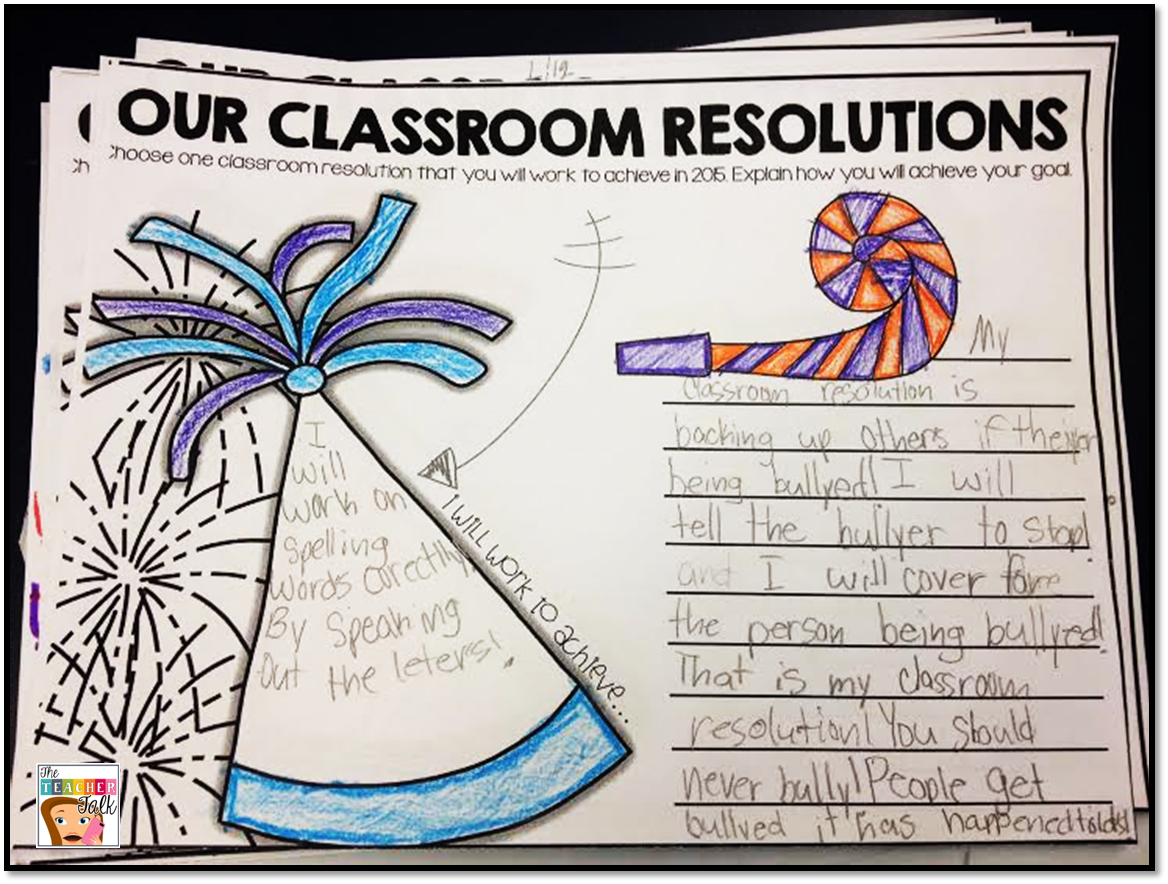 L/19
OUR CLASSROOM RESOLUTIONS
Choose one classroom resolution that you will work to achieve in 2015. Explain how you will achieve your goal.
I
will
work on
Spelling
words corectlly
By Speaking
Out the leters!
I WILL WORK TO achieve...
My
classroom resolution is
backing up others if
being bullyed! I will
tell the bullyer to stop!
and I will cover fore
the person being bullyed!
That is my classroom
resolution! You should
never bully! People get
bullyed it has happened
The
TEACHER
Talk